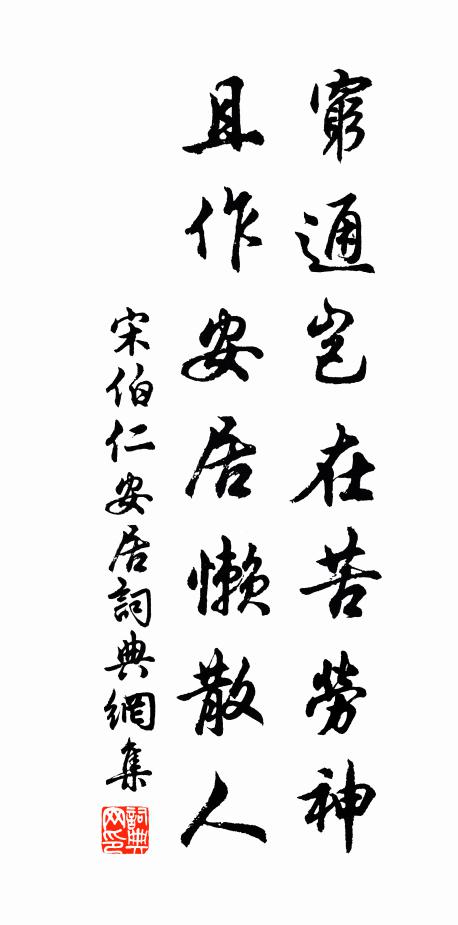 窮通豈在苦勞神
且作安居懶散人
宋伯仁安居詞典網集
詞典网印